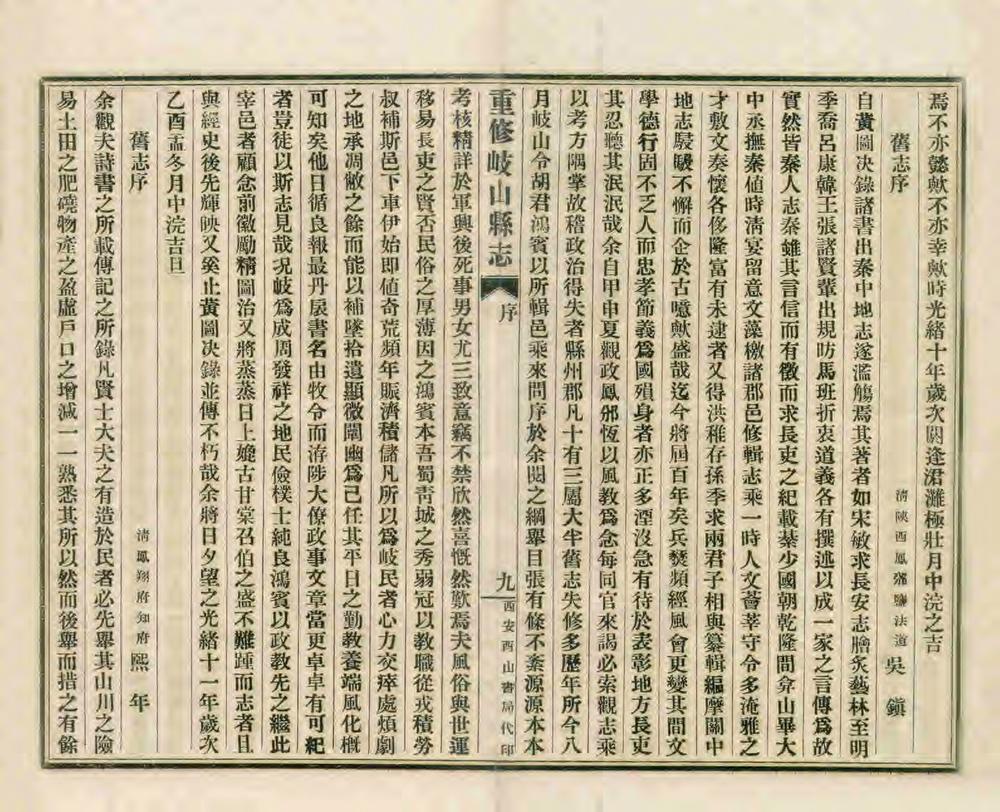 焉不亦懿歟不亦幸歟時光緒十年歲次閼逢涒灘極壯月中浣之吉
舊志序
清陝西鳳邠鹽法道 吳鎭
自黃圖决錄諸書出秦中地志遂濫觴焉其著者如宋敏求長安志膾炙藝林至明
季喬呂康韓王張諸賢輩出規昉馬班折衷道義各有撰述以成一家之言傳爲故
實然皆秦人志秦雖其言信而有徵而求長吏之紀載蓁少國朝乾隆間弇山畢大
中丞撫秦値時淸宴留意文藻檄諸郡邑修輯志乘一時人文薈萃守令多淹雅之
才敷文奏懷各侈隆富有未逮者又得洪稚存孫季求兩君子相與纂輯編摩關中
地志駸駸不懈而企於古噫歟盛哉迄今將屆百年矣兵燹頻經風會更變其間文
學德行固不乏人而忠孝節義爲國殞身者亦正多湮沒急有待於表彰地方長吏
其忍聽其泯泯哉余自甲申夏觀政鳳邠恆以風教爲念每同官來謁必索觀志乘
以考方隅掌故稽政治得失者縣州郡凡十有三屬大半舊志失修多歷年所今八
月岐山令胡君鴻賓以所輯邑乘來問序於余閱之綱舉目張有條不紊源源本本
重修岐山縣志 序 九 西安酉山書局代印
考核精詳於軍興後死事男女尤三致意竊不禁欣然喜慨然歎焉夫風俗與世運
移易長吏之賢否民俗之厚薄因之鴻賓本吾蜀靑城之秀弱冠以教職從戎積勞
叔補斯邑下車伊始即値奇荒頻年賑濟積儲凡所以爲岐民者心力交瘁處煩劇
之地承凋敝之餘而能以補墜拾遺顯微闡幽爲己任其平日之勤教養端風化概
可知矣他日循良報最丹扆書名由牧令而洊陟大僚政事文章當更卓卓有可紀
者豈徒以斯志見哉况岐爲成周發祥之地民儉樸士純良鴻賓以政教先之繼此
宰邑者顧念前徽勵精圖治又將蒸蒸日上媲古甘棠召伯之盛不難踵而志者且
與經史後先輝映又奚止黃圖决錄並傳不朽哉余將日夕望之光緒十一年歲次
乙酉孟冬月中浣吉旦
舊志序
清鳳翔府知府 熙年
余觀夫詩書之所載傳記之所錄凡賢士大夫之有造於民者必先舉其山川之險
易土田之肥磽物產之盈虛戶口之增減一一熟悉其所以然而後舉而措之有餘